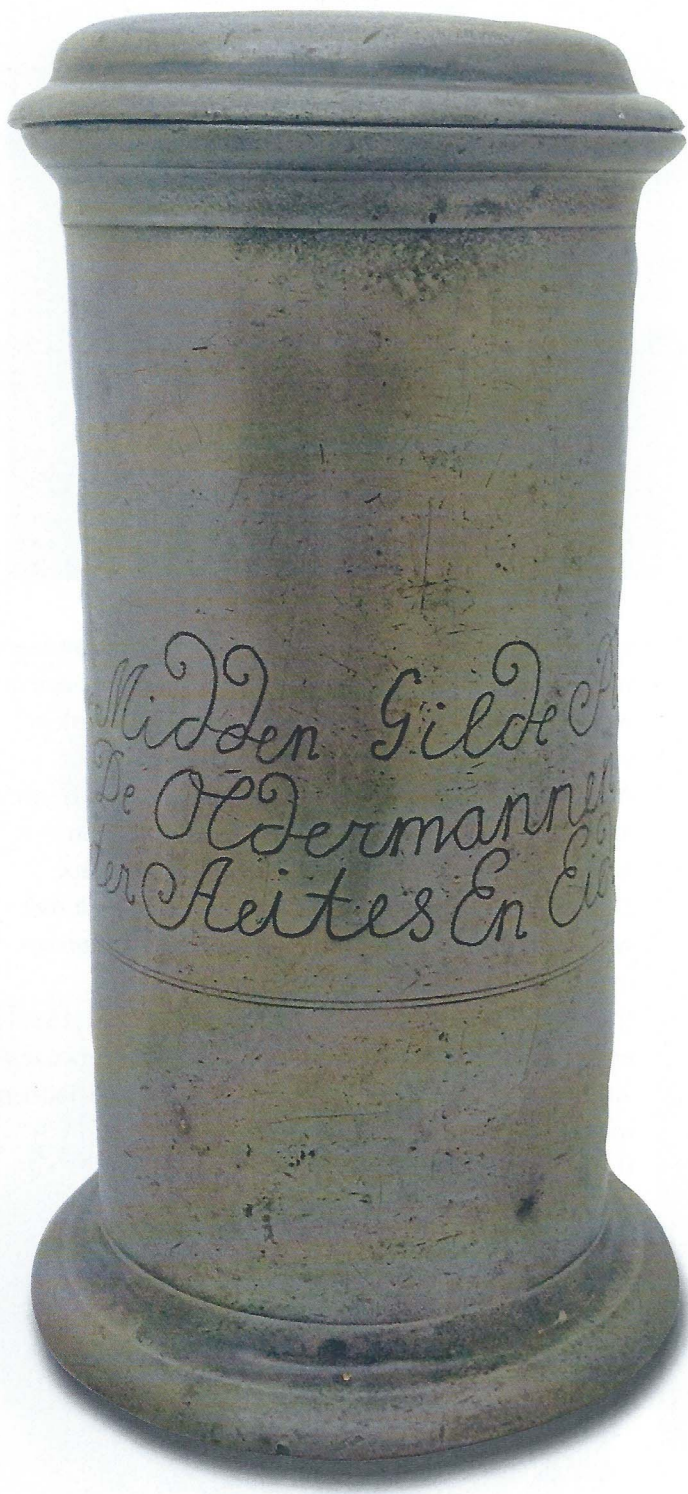 Midden Gilde
De Oldermannen
Aeites En